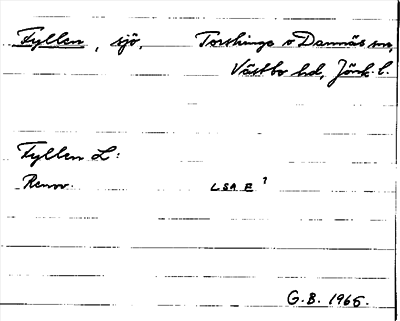 Fyllen, sjö. Torskinge o Dannäs snr,
Västbo hd, Jönk. l.
Fyllen L:
Renov. LSA E 7
G.B. 1965.